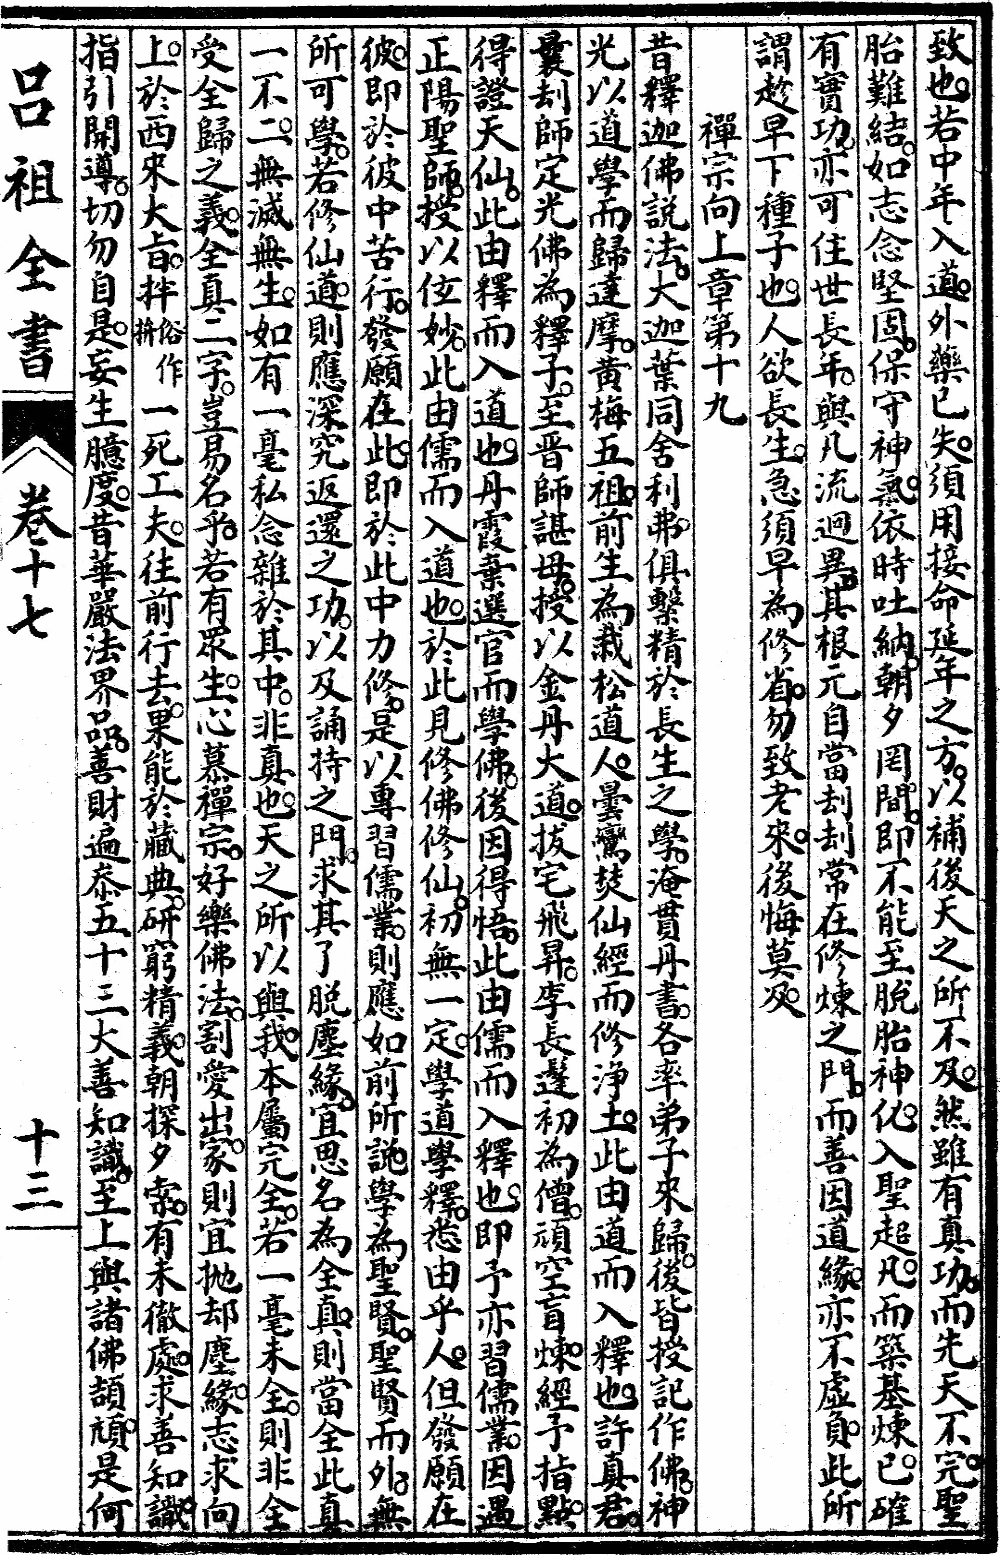 致也。若中年入道。外藥已失。須用接命延年之方。以補後天之所不及。然雖有真功。而先天不完。聖
胎難結。如志念堅固。保守神氣。依時吐納。朝夕罔間。即不能至脫胎神化。入聖超凡。而築基煉已。確
有實功。亦可住世長年。與凡流迥異。其根元自當刦刦常在修煉之門。而善因道緣。亦不虛負。此所
謂趁早下種子也。人欲長生。急須早為修省。勿致老來。後悔莫及。
禪宗向上章第十九
昔釋迦佛說法。大迦葉同舍利弗。俱繫精於長生之學。淹貫丹書。各率弟子來歸。後皆授記作佛。神
光以道學而歸達摩。黃梅五祖。前生為栽松道人。曇鸞焚仙經而修淨土。此由道而入釋也。許真君。
曩刦師定光佛為釋子。至晉師諶母。授以金丹大道。拔宅飛昇。李長髦初為僧。頑空盲煉。經予指點。
得證天仙。此由釋而入道也。丹霞棄選官而學佛。後因得悟。此由儒而入釋也。即予亦習儒業。因遇
正陽聖師。授以伭妙。此由儒而入道也。於此見修佛修仙。初無一定。學道學釋。悉由乎人。但發願在
彼。即於彼中苦行。發願在此。即於此中力修。是以專習儒業。則應如前所說。學為聖賢。聖賢而外。無
所可學。若修仙道。則應深究返還之功。以及誦持之門。求其了脫塵緣。宜思名為全真。則當全此真
一不二。無滅無生。如有一毫私念雜於其中。非真也。天之所以與我。本屬完全。若一毫未全。則非全
受全歸之義。全真二字。豈易名乎。若有眾生。心慕禪宗。好樂佛法。割愛出家。則宜拋却塵緣。志求向
上。於西來大旨。拌俗作拚一死工夫。往前行去。果能於藏典。研窮精義。朝探夕索。有未徹處。求善知識。
指引開導。切勿自是。妄生臆度。昔華嚴法界品。善財遍叅五十三大善知識。至上與諸佛頡頏。是何
呂祖全書
卷十七
十三